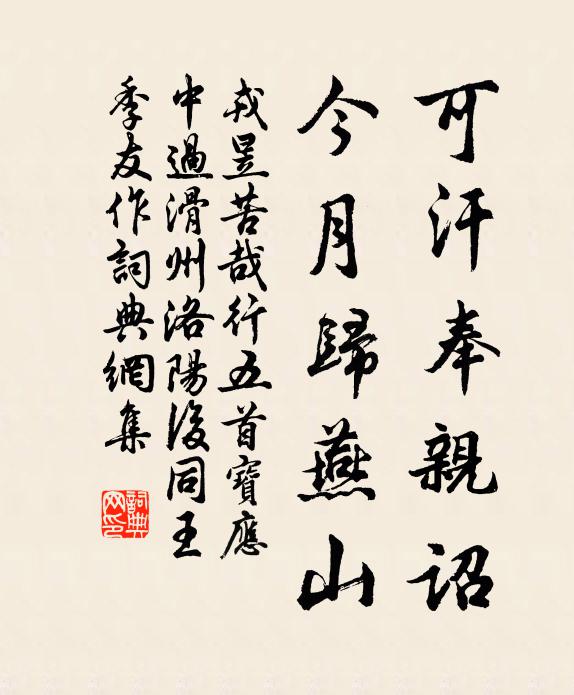 可汗奉親詔
今月歸燕山
戎昱苦哉行五首寶應
中過滑州洛陽後同王
季友作詞典網集
詞典网印